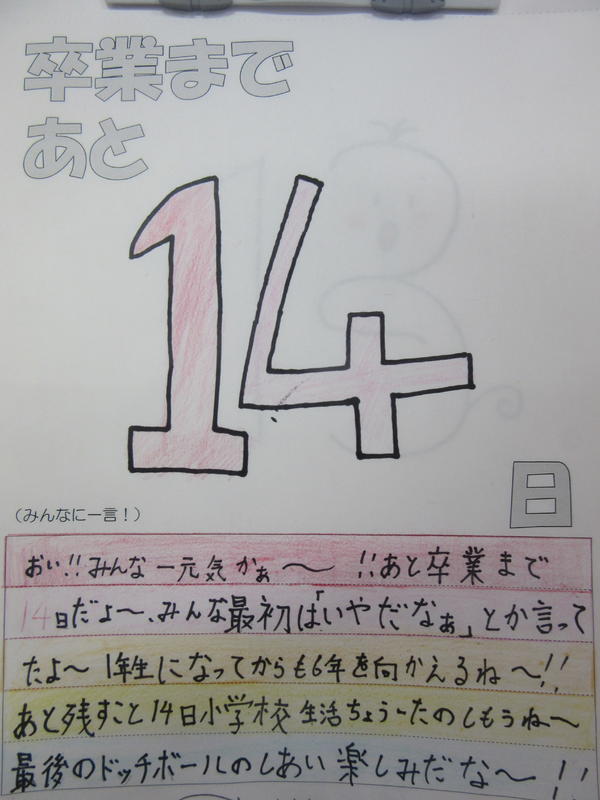 卒業まで
あと
14
日
(みんなに一言!)
おい!!みんな一元気かぁ〜 !!あと卒業まで
14日だよ〜、みんな最初は「いやだなぁ」とか言って
たよ〜 1年生になってからも6年を向かえるね〜!!
あと残すこと14日小学校生活ちょうーたのしもうね〜
最後のドッチボールのしあい楽しみだな〜!!